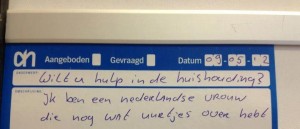 ah Aangeboden Gevraagd Datum 09-05-12
Wilt u hulp in de huishouding?
Ik ben een nederlandse vrouw
die nog wat uurtjes over hebt